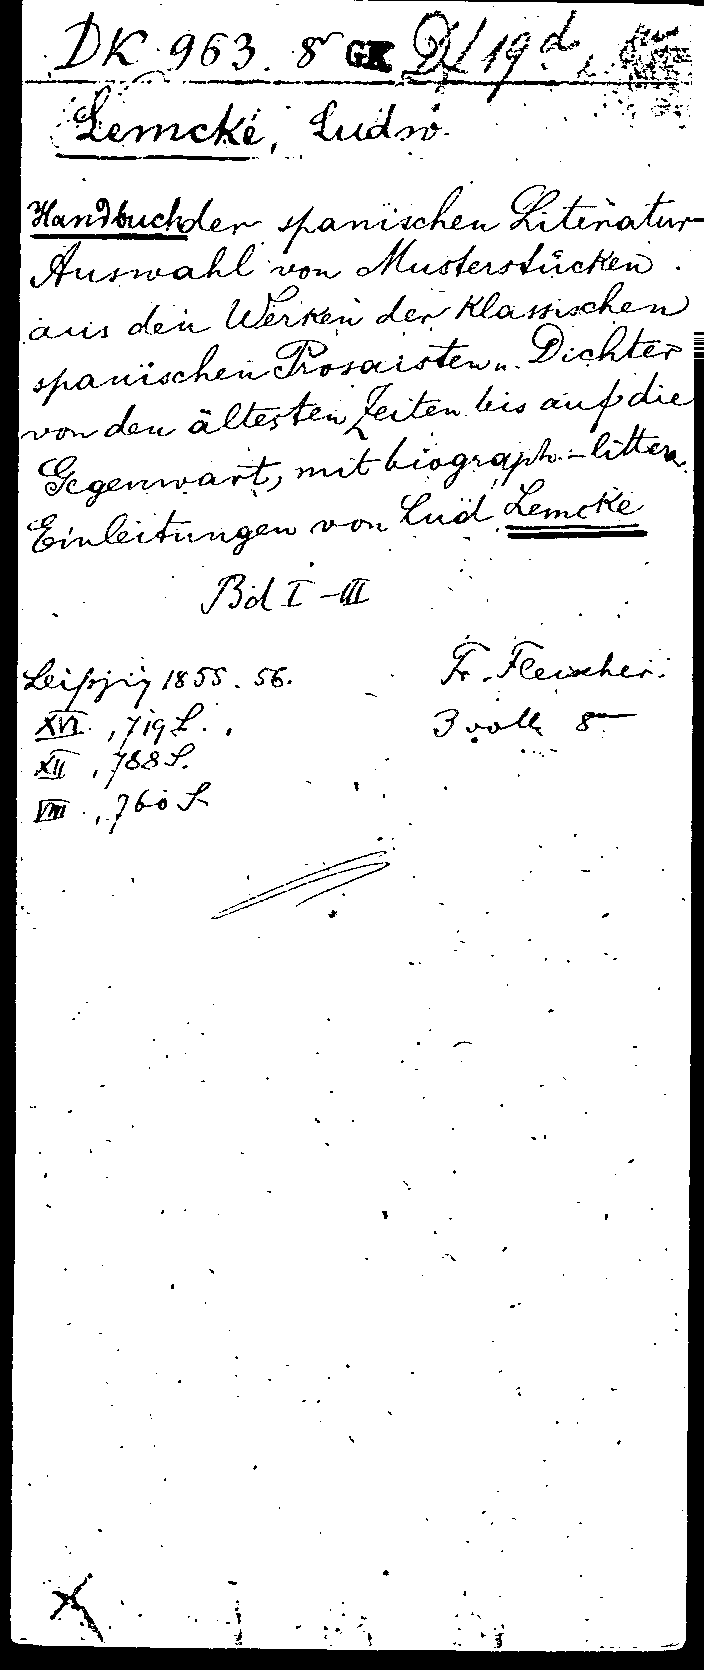 DK 963. 8° GK 19d
Lemcke, Ludw.
Handbuch der spanischen Literatur-
Auswahl von Musterstücken
aus den Werken der klassischen
spanischen Prosaisten u. Dichter
von den ältesten Zeiten bis auf die
Gegenwart, mit biograph.-litter.
Einleitungen von Lud Lemcke
Bd I-III
Leipzig 1855. 56. Fr. Fleischer.
XVI, 719 S. 3 voll. 8°
XII, 788 S.
VIII, 760 S.